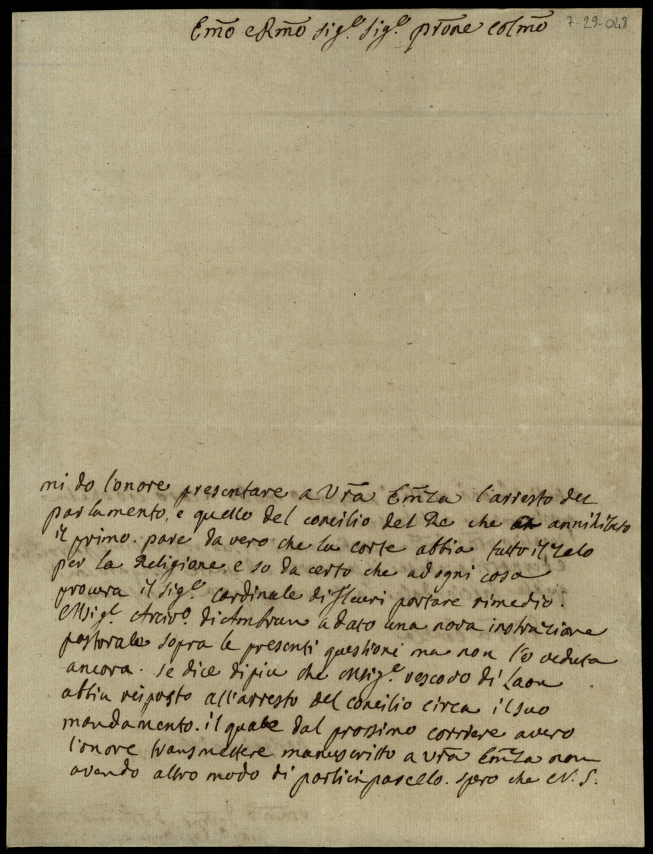 Em̃o e Rm̃o sig.e sig.e pr̃one colm̃o
7-29-048
mi do l'onore presentare a Vr̃a Em̃za l'arresto del
parlamento, e quello del concilio del Re che a annihilato
il primo. pare da vero che la corte abbia tutto il zelo
per la Religione, e so da certo che ad ogni cosa
procura il sig.e cardinale di fleuri portare rimedio.
Msig.e Arciv.o di Ambrun a dato una nova instruzione
pastorale sopra le presenti questioni ma non l'o veduta
ancora. se dice di piu che Msig.e vescovo di Laon
abbia risposto all'arresto del concilio circa il suo
mandamento. il quale dal prossimo corriere avero
l'onore transmettere manuscritto a Vr̃a Em̃za non
avendo altro modo di participarcello. spero che N. S.